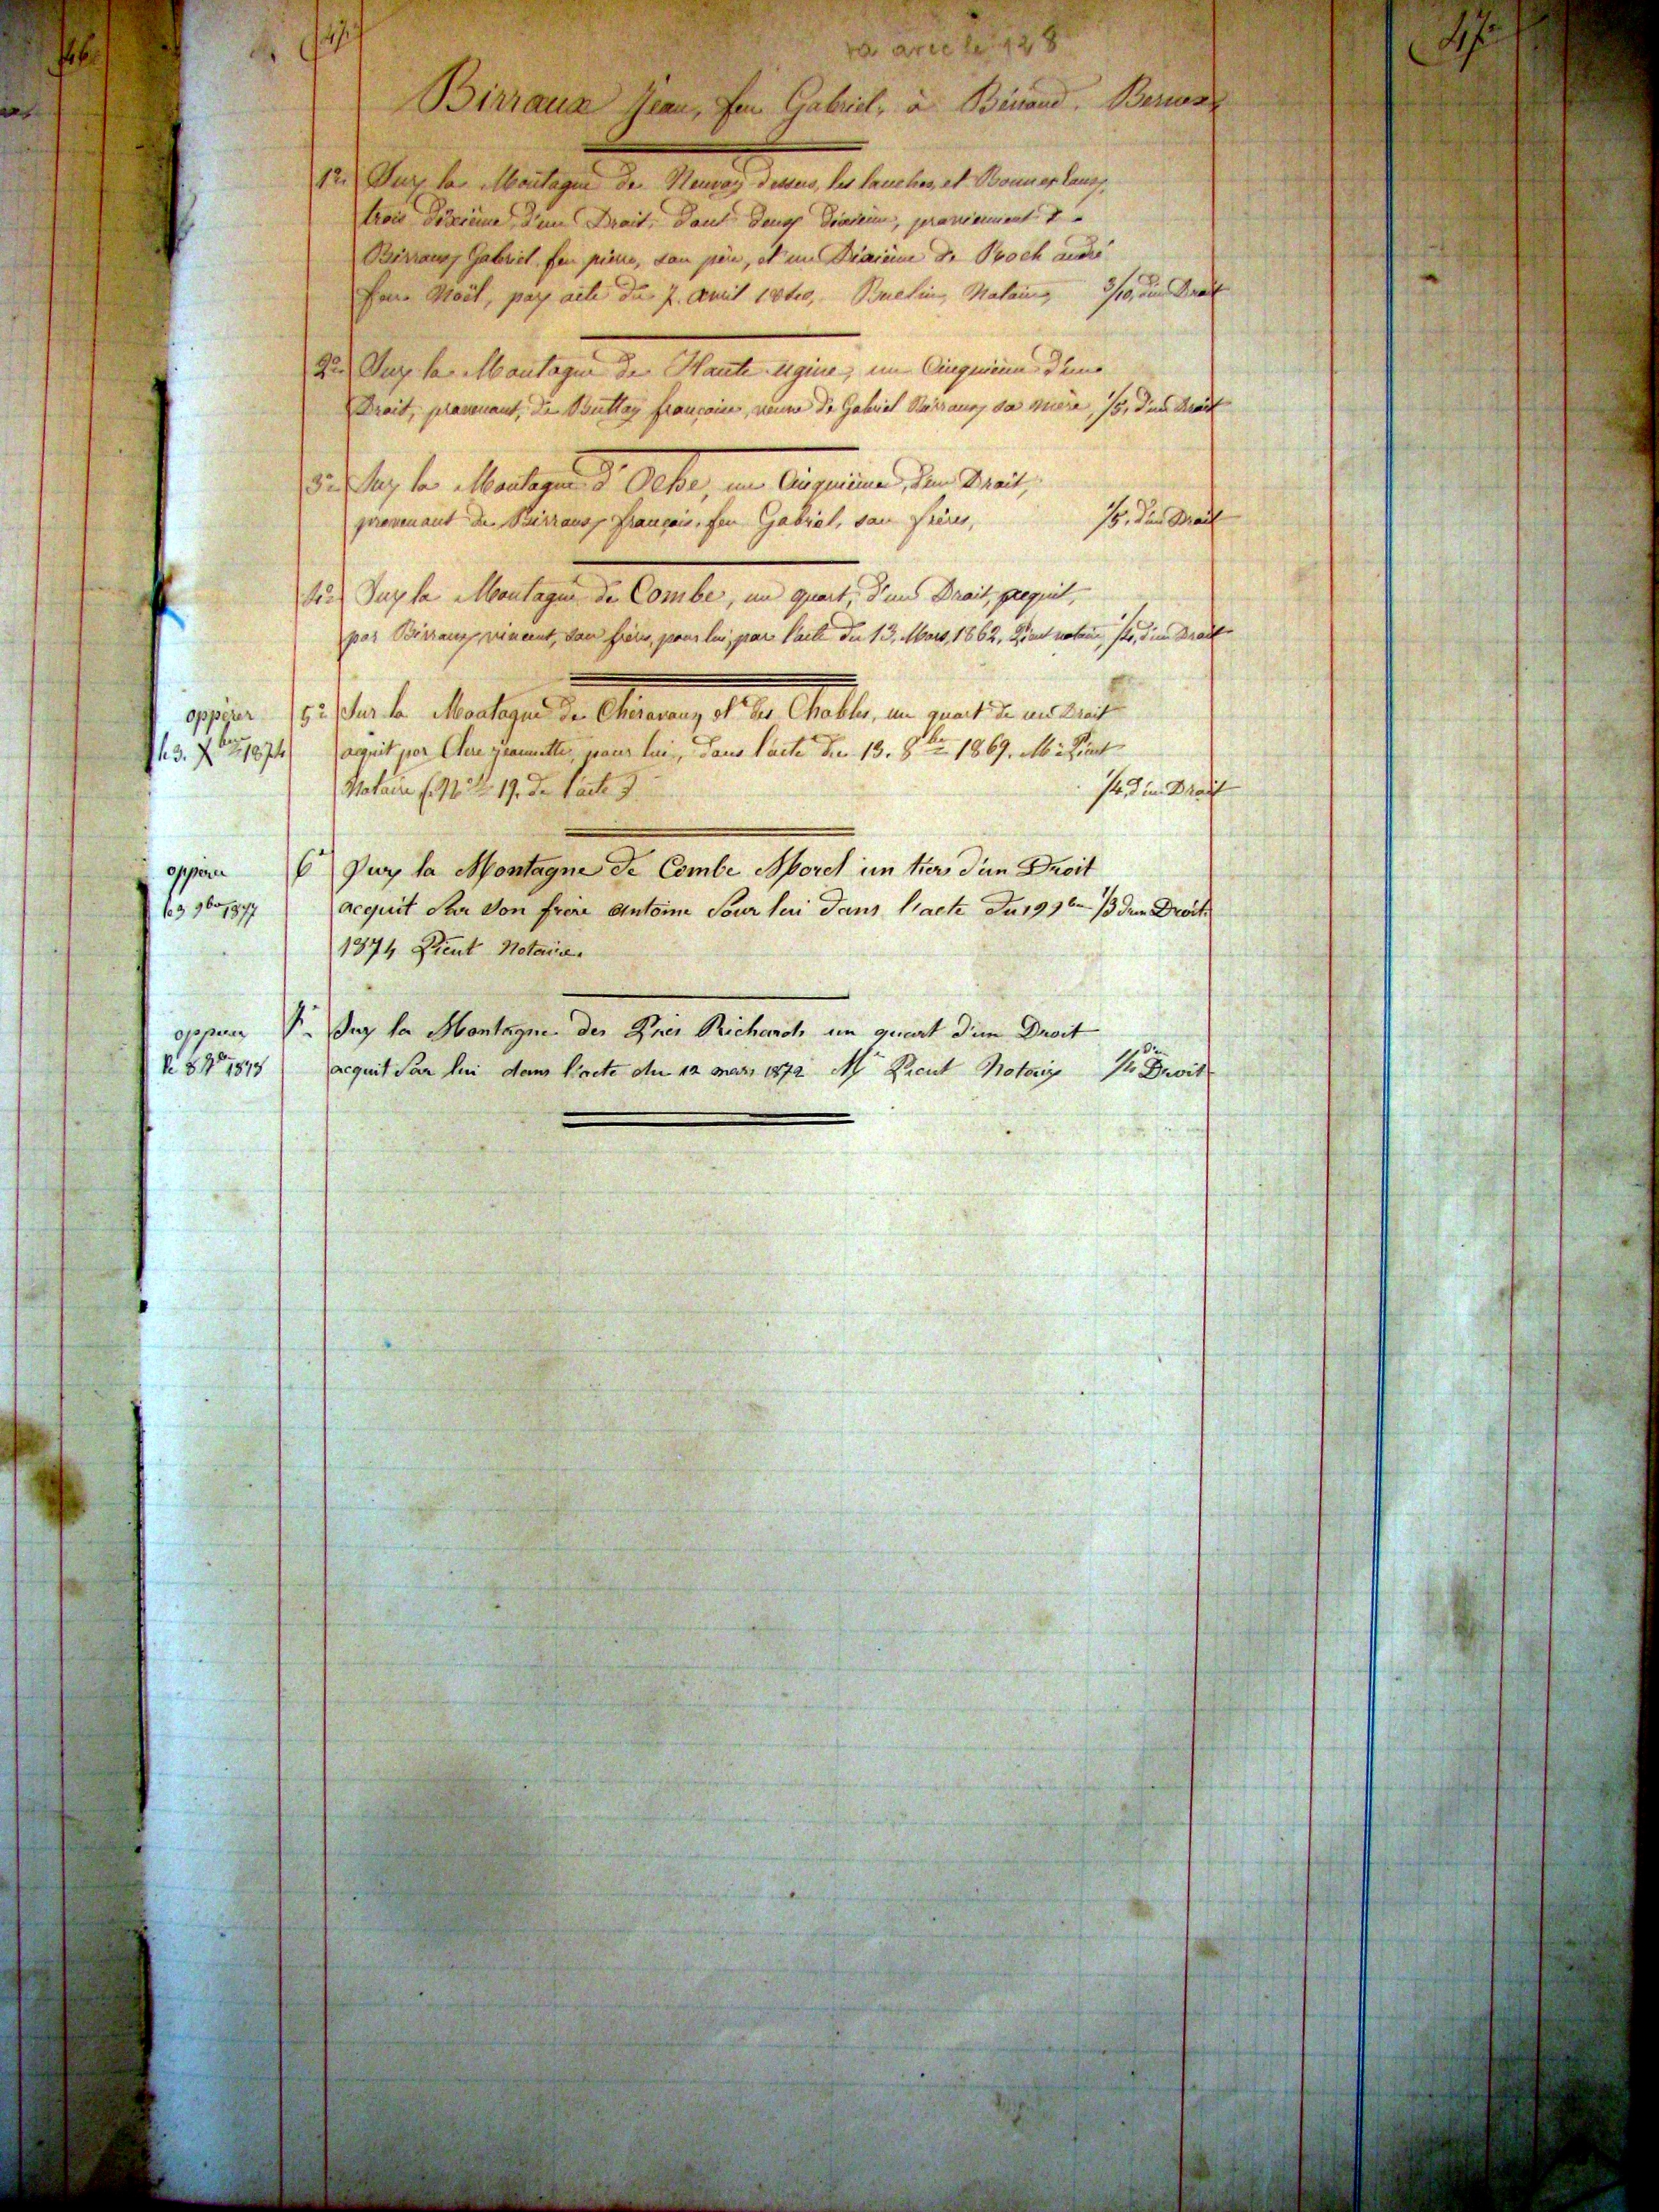 46
47
47
va avec le 128
Birraux Jean, feu Gabriel, à Bénand. Bernex
1º Sur la Montagne de Neuvaz dessus, les lanches, et Bonnevaux,
trois dixième d'un Droit, dont deux dixième, proviennent de
Birraux Gabriel, feu pierre, son père, et un Dixième de Roch andré
feu Noël, par acte du 7. avril 1840, Notaire, 3/10, d'un Droit
2º Sur la Montagne de Haute ugine, un Cinquième d'un
Droit, provenant, de Buttay françoise, veuve de Gabriel Birraux sa mère, 1/5, d'un Droit
3º Sur la Montagne d'Oche, un Cinquième, d'un Droit,
provenant de Birraux françois, feu Gabriel, son frères, 1/5, d'un Droit
4º Sur la Montagne de Combe, un quart, d'un Droit, acquit,
par Birraux vincent, son frère, pour lui, par l'acte du 13, Mars, 1862, Pient notaire, 1/4, d'un Droit
oppérer 5º Sur la Montagne de Chéravaux et des Chables, un quart de un Droit
le 3. Xbre 1874 acquit par Clerc jeannette, pour lui, dans l'acte du 13. 8bre 1869. Mº Pient
Notaire (Nº 19. de l'acte) 1/4, d'un Droit
oppérer 6º Sur la Montagne de Combe Morel un tiers d'un Droit
le 3 9bre 1877 acquit Par son frère antoine Pour lui dans l'acte du 19 9bre 1/3 d'un Droit
1874 Pient Notaire.
opperer 7º Sur la Montagne des Prés Richards un quart d'un Droit
le 8 Xbre 1878 acquit Par lui dans l'acte du 12 mars 1872 Mº Pient Notaire 1/4 d'un Droit